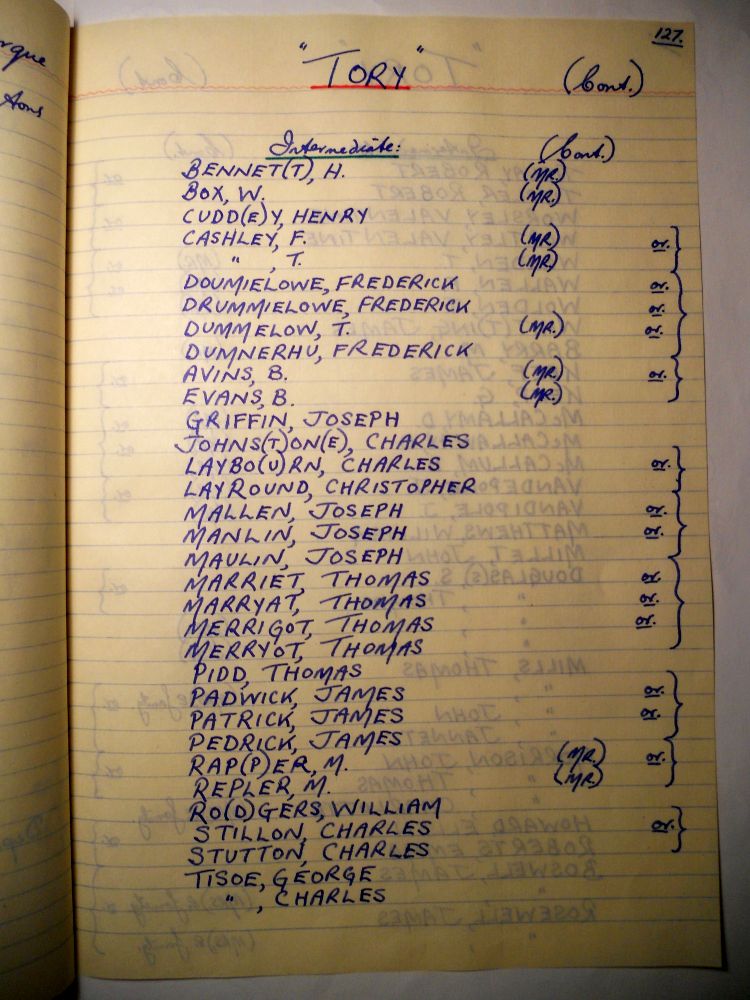 127.
"TORY" (Cont.)
Intermediate: (Cont.)
BENNET(T), H. (MR.)
BOX, W. (MR.)
CUDD(E)Y, HENRY
CASHLEY, F. (MR.) or.
" , T. (MR.)
DOUMIELOWE, FREDERICK or.
DRUMMIELOWE, FREDERICK or.
DUMMELOW, T. (MR.) or.
DUMNERHU, FREDERICK
AVINS, B. (MR.) or.
EVANS, B. (MR.)
GRIFFIN, JOSEPH
JOHNS(T)ON(E), CHARLES
LAYBO(U)RN, CHARLES or.
LAYROUND, CHRISTOPHER
MALLEN, JOSEPH or.
MANLIN, JOSEPH or.
MAULIN, JOSEPH
MARRIET, THOMAS or.
MARRYAT, THOMAS or.
MERRIGOT, THOMAS or.
MERRYOT, THOMAS
PIDD, THOMAS
PADWICK, JAMES or.
PATRICK, JAMES or.
PEDRICK, JAMES
RAP(P)ER, M. (MR.) or.
REPLER, M. (MR.)
RO(D)GERS, WILLIAM
STILLON, CHARLES or.
STUTTON, CHARLES
TISOE, GEORGE
" , CHARLES